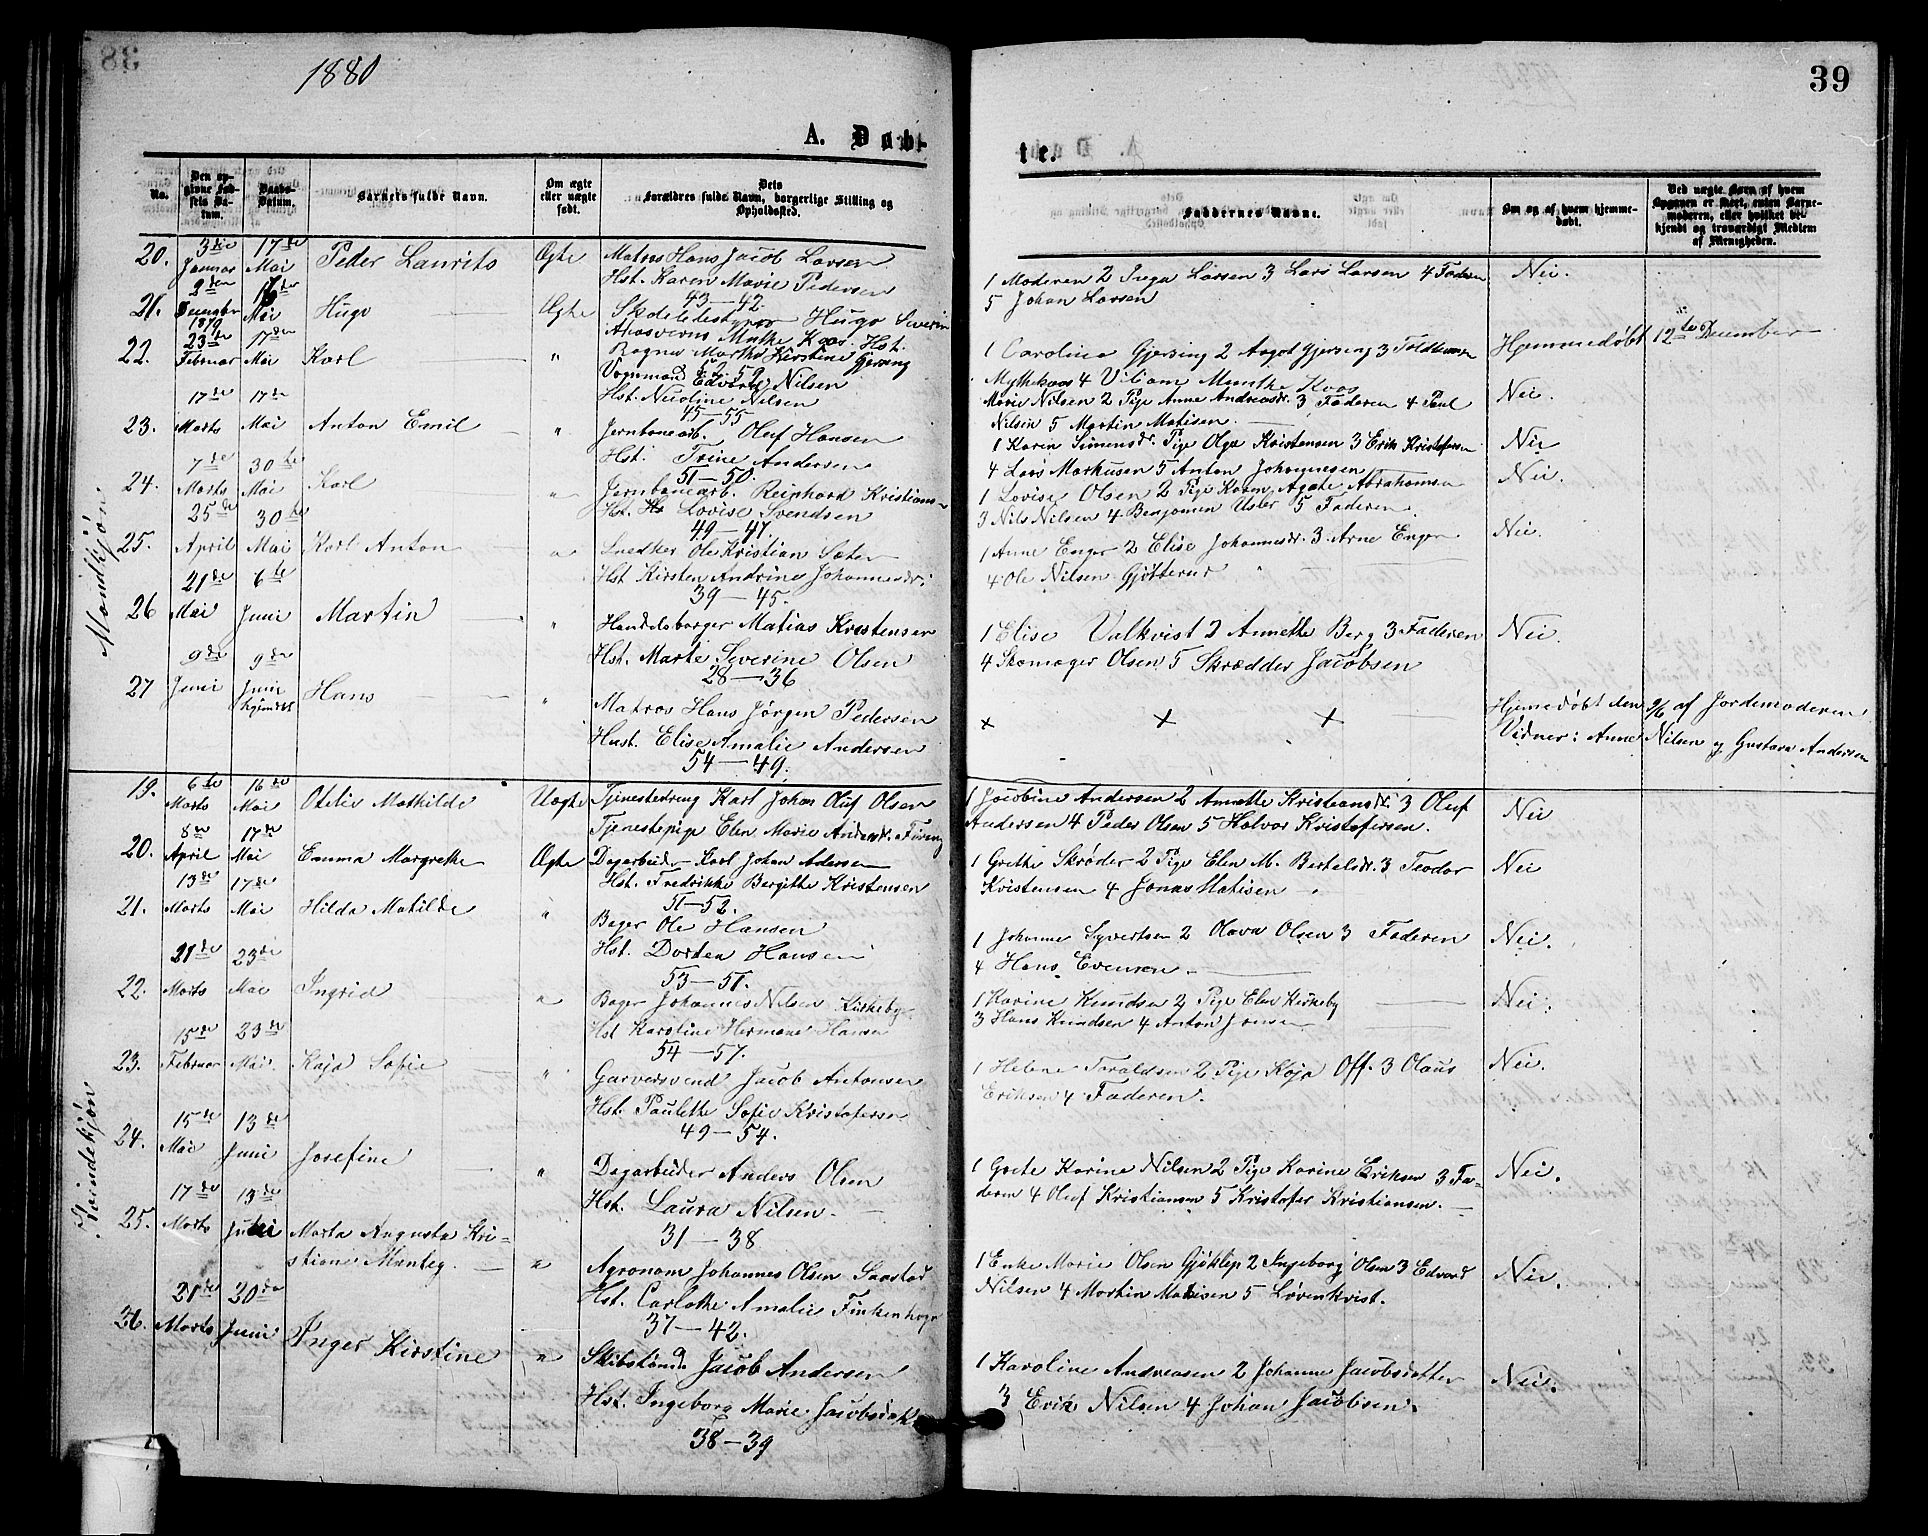 38
1880
39
A. Døbte.
No.
Den opgivne Fødsels Datum.
Daabs-Datum.
Barnets fulde Navn.
Om ægte eller uægte født.
Dets Forældres fulde Navn, borgerlige Stilling og Opholdssted.
Faddernes Navne.
Om og af hvem hjemmedøbt.
Ved uægte Børn af hvem Opgaven er skeet, enten Barnemoderen, eller hvilket bekjendt og troværdigt Medlem af Menigheden.
Mandkjøn.
20. 3die Januar 17de Mai Peder Laurits Ægte Matros Hans Jacob Larsen
Hst. Karen Marie Pedersen
43–42.
1 Moderen 2 Inga Larsen 3 Lars Larsen 4 Faderen
5 Johan Larsen
Nei.
21. 2den December 1879 16de Mai Hugo Ægte Hugo Severin
Ahasverus Kaas. Hst.
Ragna Marthe Kirstine Gjersing
52–59.
1 Caroline Gjersing 2 Aagot Gjersing 3
4 Viliam Munthe Kaas
Hjemmedøbt 12te December
22. 23de Februar 17de Mai Karl " Vognmand Edvard Nilsen
Hst. Nicoline Nilsen
45–55
Marie Nilsen 2 Pige Anne Andreasdr. 3 Faderen 4 Paul
Nilsen 5 Martin Matisen.
Nei.
23. 17de Marts 17de Mai Anton Emil " Jernbanearb. Oluf Hansen
Hst. Trine Andersen
51–50.
1 Karin Simensdr. Pige Olga Kristensen 3 Erik Kristofersen
4 Lars Markusen 5 Anton Johannesen
Nei
24. 7de Marts 30te Mai Karl " Jernbanearb. Reinhard Kristians
Hst. Lovise Svendsen
49–47.
1 Lovise Olsen 2 Pige Karen Agate Abrahamsen
3 Nils Nilsen 4 Benjamin Usler 5 Faderen.
Nei.
25. 25de April 30te Mai Karl Anton " Snedker Ole Kristian Sæter
Hst. Kirsten Andrine Johannesdr.
39–45.
1 Anne Enger 2 Elise Johannesdr. 3. Arne Enger
4 Ole Nilsen Gjötterud
Nei.
26 21de Mai 6te Juni Martin " Handelsborger Matias Kristensen
Hst. Marte Severine Olsen
28–36
1 Elise Valkvist 2 Annette Berg 3 Faderen
4 Skomager Olsen 5 Skrædder Jacobsen
Nei.
27 9de Juni 9de Juni Hans " Matros Hans Jørgen Pedersen
Hust. Elise Amalie Andersen
54–49.
+ + +
Hjemmedøbt den 9/6 af Jordemoderen
Vidner: Anne Nilsen og Gustava Andersen
Kvindekjøn.
19. 6te Marts 16de Mai Otelie Mathilde Uægte Tjenestedreng Karl Johan Oluf Olsen
Tjenestepige Elen Marie Andersdr.
1 Jacobine Andersen 2 Annette Kristiansdr. 3 Oluf
Andersen 4 Peder Olsen 5 Halvor Kristofersen.
Nei
20. 8de April 17de Mai Emma Margrethe Ægte Dagarbeider Karl Johan Adersen
Hst. Fredrikke Bergitte Kristensen
51–52.
1 Grethe Skrøder 2 Pige Elen M. Bertelsdr. 3 Teodor
Kristensen 4 Jonas Matisen
Nei
21. 13de Marts 17de Mai Hilda Matilde " Bager Ole Hansen
Hst. Dortea Hansen
53–51.
1 Johanne Syvertsen 2 Olava Olsen 3 Faderen
4 Hans Evensen.
Nei.
22. 21de Marts 23de Mai Ingrid " Bager Johannes Nilsen Kirkeby
Hst Karoline Hermane Hansen
54–57.
1 Karine Knudsen 2 Pige Elen Kirkeby
3 Hans Knudsen 4 Anton Jensen
Nei.
23. 15de Februar 23de Mai. Kaja Sofie " Garversvend Jacob Antonsen
Hst. Paulette Sofie Kristofersen
49–54.
1 Helene Toraldsen 2 Pige Kaja Off. 3 Olaus
Eriksen 4 Faderen.
Nei.
24. 15de Mai 13de Juni Josefine " Dagarbeider Anders Olsen
Hst. Laura Nilsen.
31–38
1 Grete Karine Nilsen 2 Pige Karine Eriksen 3 Fa-
deren 4 Oluf Kristiansen 5 Kristofer Kristiansen.
Nei.
25. 17de Marts 13de Juni Marta Augusta Kri-
stiane " Agronom Johannes Olsen Saastad
Hst. Carlotte Amalie Finkenhagen
37–42.
1 Enke Marie Olsen Gjøklep 2 Ingeborg Olsen 3 Edvard
Nilsen 4 Martin Matisen 5 Løvenkvist.
Nei.
26. 21de Marts 20de Juni Inger Kirstine " Jacob Andersen
Hst. Ingeborg Marie Jacobsdat
38–39
1 Karoline Andreasen 2 Johanne Jacobsdatter
3 Erik Nilsen 4 Johan Jacobsen.
Nei.